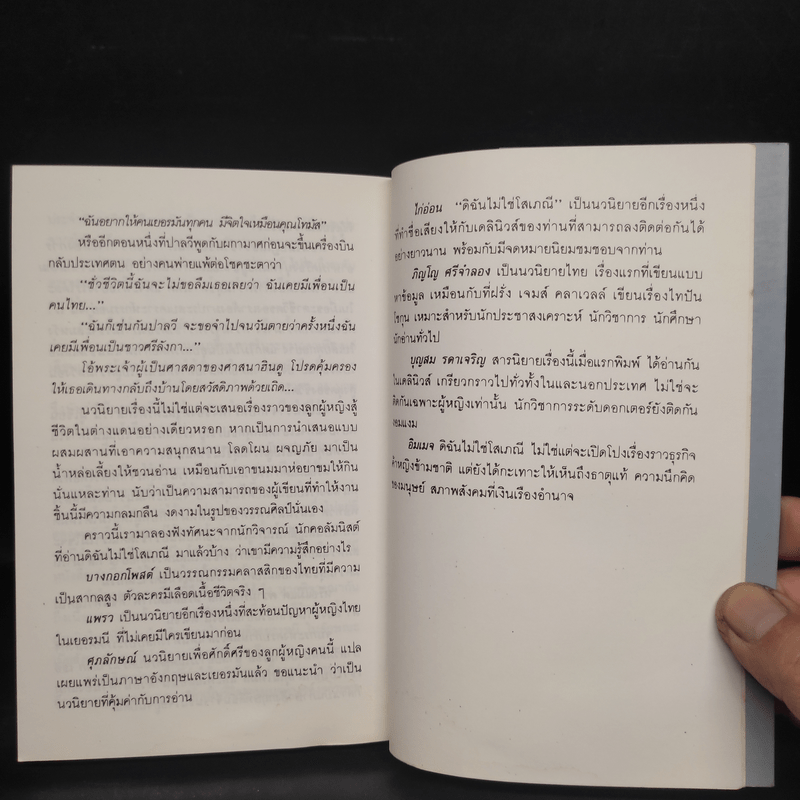 "ฉันอยากให้คนเยอรมันทุกคน มีจิตใจเหมือนคุณโทมัส"
หรืออีกตอนหนึ่งที่ปาลวีพูดกับผกามาศก่อนจะขึ้นเครื่องบิน
กลับประเทศตน อย่างคนพ่ายแพ้ต่อโชคชะตาว่า
"ชั่วชีวิตนี้ฉันจะไม่ขอลืมเธอเลยว่า ฉันเคยมีเพื่อนเป็น
คนไทย..."
"ฉันก็เช่นกันปาลวี จะขอจำไปจนวันตายว่าครั้งหนึ่งฉัน
เคยมีเพื่อนเป็นชาวศรีลังกา..."
โอ้พระเจ้าผู้เป็นศาสดาของศาสนาฮินดู โปรดคุ้มครอง
ให้เธอเดินทางกลับถึงบ้านโดยสวัสดิภาพด้วยเถิด...
นวนิยายเรื่องนี้ไม่ใช่แต่จะเสนอเรื่องราวของลูกผู้หญิงสู้
ชีวิตในต่างแดนอย่างเดียวหรอก หากเป็นการนำเสนอแบบ
ผสมผสานที่เอาความสนุกสนาน โลดโผน ผจญภัย มาเป็น
น้ำหล่อเลี้ยงให้ชวนอ่าน เหมือนกับเอาขนมมาห่อยาขมให้กิน
นั่นแหละท่าน นับว่าเป็นความสามารถของผู้เขียนที่ทำให้งาน
ชิ้นนี้มีความกลมกลืน งดงามในรูปของวรรณศิลป์นั่นเอง
คราวนี้เรามาลองฟังทัศนะจากนักวิจารณ์ นักคอลัมนิสต์
ที่อ่านดิฉันไม่ใช่โสเภณี มาแล้วบ้าง ว่าเขามีความรู้สึกอย่างไร
บางกอกโพสต์ เป็นวรรณกรรมคลาสสิกของไทยที่มีความ
เป็นสากลสูง ตัวละครมีเลือดเนื้อชีวิตจริง ๆ
แพรว เป็นนวนิยายอีกเรื่องหนึ่งที่สะท้อนปัญหาผู้หญิงไทย
ในเยอรมนี ที่ไม่เคยมีใครเขียนมาก่อน
ศุภลักษณ์ นวนิยายเพื่อศักดิ์ศรีของลูกผู้หญิงคนนี้ แปล
เผยแพร่เป็นภาษาอังกฤษและเยอรมันแล้ว ขอแนะนำ ว่าเป็น
นวนิยายที่คุ้มค่ากับการอ่าน
ไก่อ่อน "ดิฉันไม่ใช่โสเภณี" เป็นนวนิยายอีกเรื่องหนึ่ง
ที่ทำชื่อเสียงให้กับเดลินิวส์ของท่านที่สามารถลงติดต่อกันได้
อย่างยาวนาน พร้อมกับมีจดหมายนิยมชมชอบจากท่าน
ภิญโญ ศรีจำลอง เป็นนวนิยายไทย เรื่องแรกที่เขียนแบบ
หาข้อมูล เหมือนกับที่ฝรั่ง เจมส์ คลาเวลล์ เขียนเรื่องไทปัน
โชกุน เหมาะสำหรับนักประชาสงเคราะห์ นักวิชาการ นักศึกษา
นักอ่านทั่วไป
บุญสม รดาเจริญ สารนิยายเรื่องนี้เมื่อแรกพิมพ์ ได้อ่านกัน
ในเดลินิวส์ เกรียวกราวไปทั่วทั้งในและนอกประเทศ ไม่ใช่จะ
ติดกันเฉพาะผู้หญิงเท่านั้น นักวิชาการระดับดอกเตอร์ยังติดกัน
งอมแงม
อิมเมจ ดิฉันไม่ใช่โสเภณี ไม่ใช่แต่จะเปิดโปงเรื่องราวธุรกิจ
ค้าหญิงข้ามชาติ แต่ยังได้กะเทาะให้เห็นถึงธาตุแท้ ความนึกคิด
ของมนุษย์ สภาพสังคมที่เงินเรืองอำนาจ